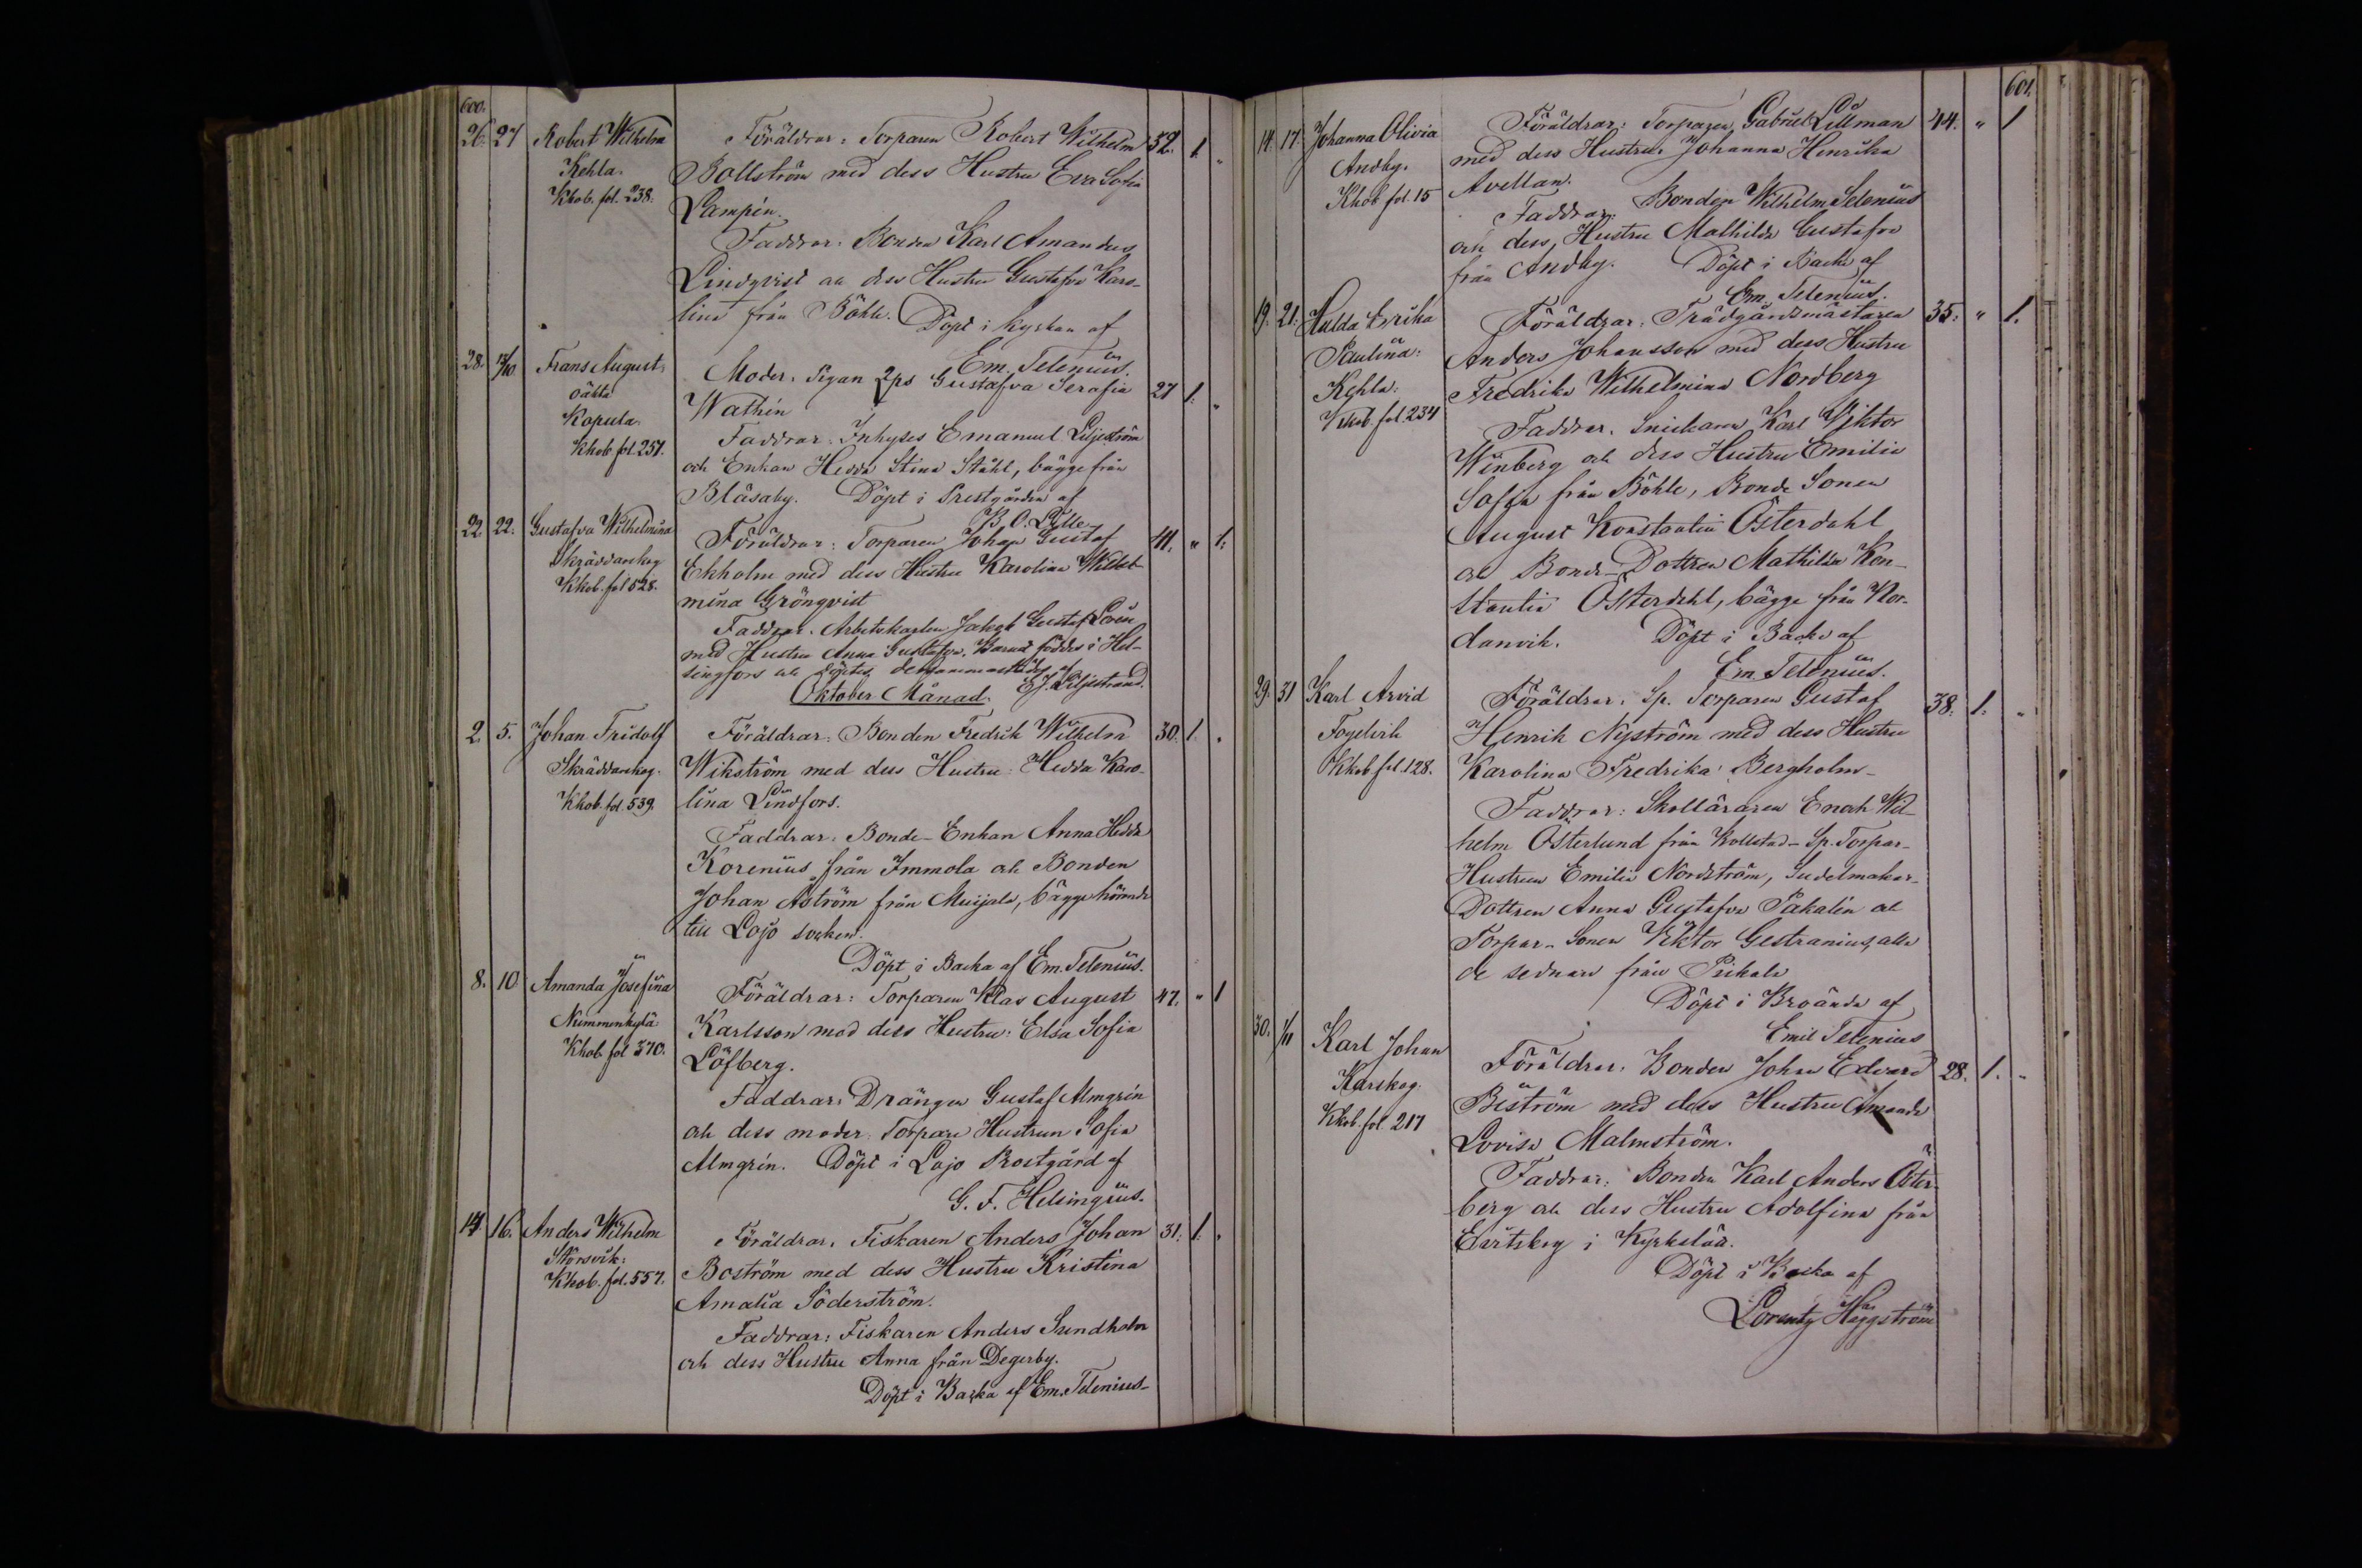 600.
26. 27 Robert Wilhelm Föräldrar: Torparen Robert Wilhelm 32. 1. "
Kehla. Bollström med dess Hustru Eva Sofia
Kbob. fol. 238. Lampén.
Faddrar: Bonden Karl Amandus
Lindqvist och dess Hustru Gustafva Karo-
lina från Böhle. Döpt i kyrkan af
Em. Telenius.
28. Frans August, Moder: Pigan Gustafva Serafia 27 1. "
oäkta Wathén
Kopula. Faddrar: Inhyses Emanuel Liljeström
Kbob. fol. 257. och Enkan Hedda Stina Ståhl, bägge från
Bläsaby. Döpt i Prestgården af
B. O. Lille.
22. 22. Gustafva Wilhelmina Föräldrar: Torparen Johan Gustaf 41. " 1.
Skräddarskog Ekholm med dess Hustru Karolina Wilhel-
Kbob. fol 528. mina Grönqvist
Faddrar: Arbetskarlen Jakob Gustaf Lovén
med Hustru Anna Gustafva. Barnet föddes i Hel-
singfors och döptes dersammastädes af
E. J. Liljestrand.
Oktober Månad.
2. 5. Johan Fridolf Föräldrar: Bonden Fredrik Wilhelm 30. 1. "
Skräddarskog. Wikström med dess Hustru Hedda Karo-
Kbob. fol. 539. lina Lindfors.
Faddrar: Bonde-Enkan Anna Hedda
Korenius från Immola och Bonden
Johan Åström från Muijala, bägge hörande
till Lojo socken.
Döpt i Backa af Em. Telenius.
8. 10 Amanda Josefina Föräldrar: Torparen Klas August 47. " 1
Nummenkylä Karlsson med dess Hustru Elsa Sofia
Kbob. fol 370. Löfberg.
Faddrar: Drängen Gustaf Almgrén
och dess moder Torpare Hustrun Sofia
Almgrén. Döpt i Lojo Prostgård af
G. F. Helsingius.
14 16. Anders Wilhelm Föräldrar: Fiskaren Anders Johan 31. 1. "
Störsvik: Boström med dess Hustru Kristina
Kbob. fol. 557. Amalia Söderström.
Faddrar: Fiskaren Anders Sundholm
och dess Hustru Anna från Degerby.
Döpt i Backa af Em. Telenius-
601.
14. 17. Johanna Olivia Föräldrar: Torparen Gabriel Lillman 44. " 1
Andby. med dess Hustru Johanna Henrika
Kbob fol. 15 Avellan.
Faddrar: Bonden Wilhelm Selenius
och dess Hustru Mathilda Gustafva
från Andby. Döpt i Backa af
Em. Telenius.
19. 21. Hulda Erika Föräldrar: Trädgårdsmästaren 35. " 1.
Paulina: Anders Johansson med dess Hustru
Kehla: Fredrika Wilhelmina Nordberg
Kbob. fol. 234 Faddrar: Snickaren Karl Viktor
Winberg och dess Hustru Emilia
Sofia från Böhle, Bonde Sonen
August Konstantin Österdahl
och Bonde-Dottren Mathilda Kon-
stantia Österdahl, bägge från Kor-
danvik. Döpt i Backa af
Em Telenius.
29. 31 Karl Arvid Föräldrar: Sp. Torparen Gustaf 38. 1. "
Fogelvik Henrik Nyström med dess Hustru
Kbob fol. 128. Karolina Fredrika Bergholm-
Faddrar: Skolläraren Enoch Wil-
helm Österlund från Kollstad- Sp. Torpar-
Hustrun Emilia Nordström, Sadelmakar-
Dottren Anna Gustafva Pakalén och
Torpar-Sonen Viktor Gestranius, alla
de sednare från Pickala
Döpt i Broända af
Emil Telenius
30. 1/11 Karl Johan Föräldrar: Bonden Johan Edvard 28. 1. "
Karskog. Biström med dess Hustru Amanda
Kbob. fol. 217 Lovisa Malmström.
Faddrar: Bonden Karl Anders Öster-
berg och dess Hustru Adolfina från
Evitskog i Kyrkslätt.
Döpt i Backa af
Lorentz Häggström